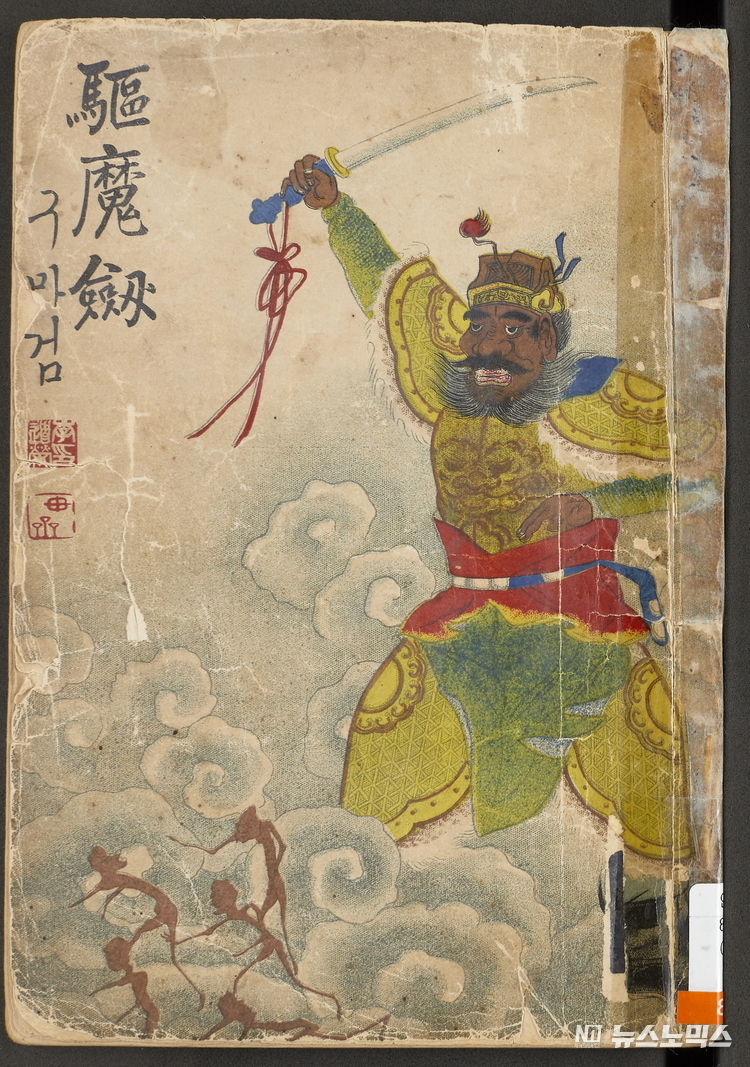 驅魔劔
구마검
뉴스노믹스